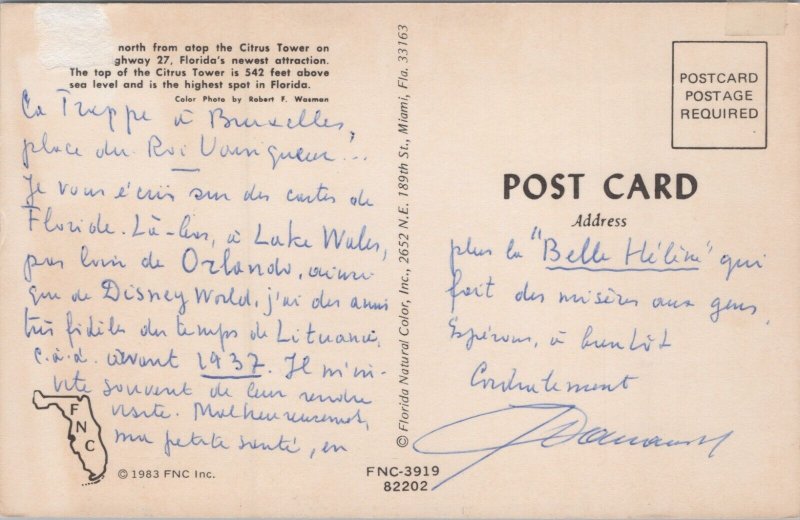 north from atop the Citrus Tower on
ghway 27, Florida's newest attraction.
The top of the Citrus Tower is 542 feet above
sea level and is the highest spot in Florida.
Color Photo by Robert F. Wasman
La Trappe à Bruxelles,
place du Roi Vainqueur...
Je vous écris sur des cartes de
Floride. Là-bas, à Lake Wales,
pas loin de Orlando, ainsi
que de Disney World, j'ai des amis
très fidèles du temps de Lituanie,
c.à.d. avant 1937. Ils m'in-
vite souvent de leur rendre
visite. Malheureusement,
ma petite santé, en
FNC
© 1983 FNC Inc.
© Florida Natural Color, Inc., 2652 N.E. 189th St., Miami, Fla. 33163
FNC-3919
82202
POSTCARD
POSTAGE
REQUIRED
POST CARD
Address
plus la "Belle Hélène" qui
fait des misères aux gens.
Espérons, à bientôt
Cordialement